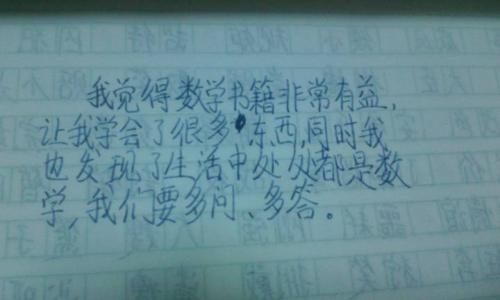 我觉得数学书籍非常有益,
让我学会了很多东西,同时我
也发现了生活中处处都是数
学,我们要多问、多答。